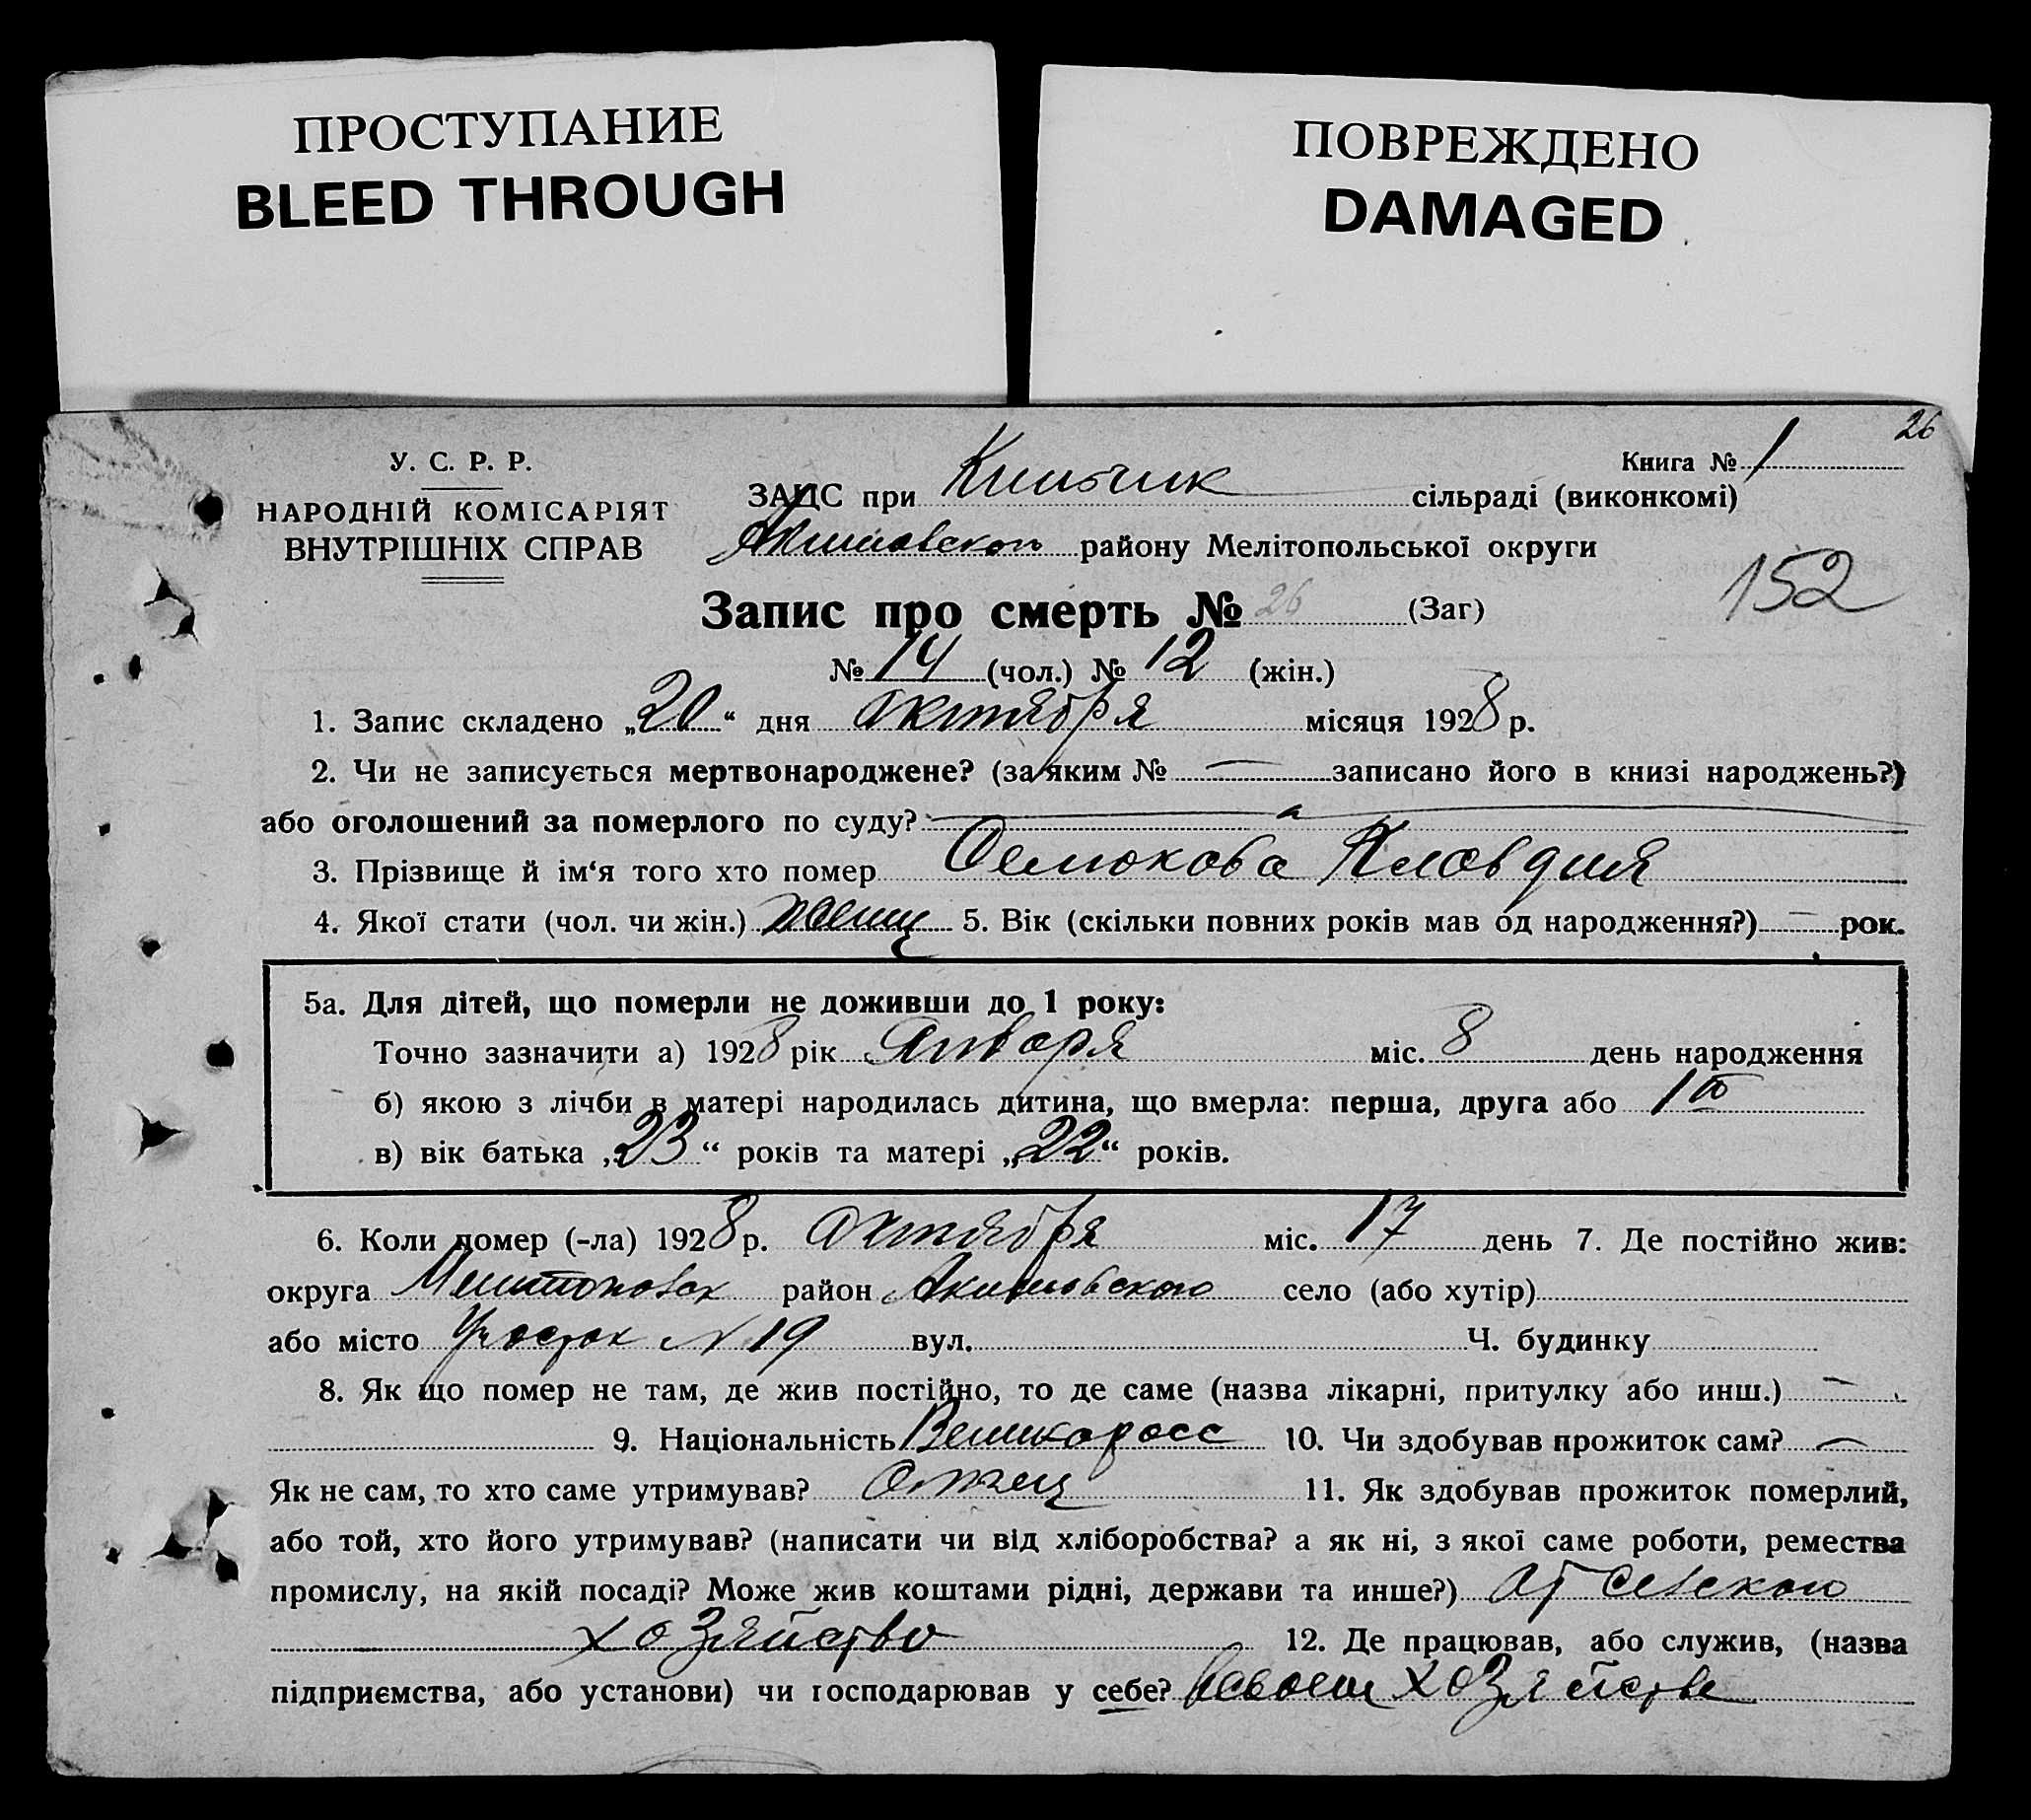 ПРОСТУПАНИЕ
BLEED THROUGH
ПОВРЕЖДЕНО
DAMAGED
26
У. С. Р. Р.
НАРОДНІЙ КОМІСАРІЯТ
ВНУТРІШНІХ СПРАВ
Книга № 1
ЗАЦС при сільраді (виконкомі)
Акимовского району Мелітопольської округи
152
Запис про смерть № 26 (Заг)
№ 14 (чол.) № 12 (жін.)
1. Запис складено „20“ дня Октября місяця 1928 р.
2. Чи не записується мертвонароджене? (за яким № — записано його в книзі народжень?)
або оголошений за померлого по суду?
3. Прізвище й ім‘я того хто помер Семокова Клавдия
4. Якої стати (чол. чи жін.) женщ 5. Вік (скільки повних років мав од народження?) — рок.
5а. Для дітей, що померли не доживши до 1 року:
Точно зазначити а) 1928 рік Января міс. 8 день народження
б) якою з лічби в матері народилась дитина, що вмерла: перша, друга або 1ю
в) вік батька „23“ років та матері „22“ років.
6. Коли помер (-ла) 1928 р. Октября міс. 17 день 7. Де постійно жив:
округа Мелитопольск район Акимовского село (або хутір)
або місто Участок № 19 вул. Ч. будинку
8. Як що помер не там, де жив постійно, то де саме (назва лікарні, притулку або инш.) —
9. Національність Великоросс 10. Чи здобував прожиток сам? —
Як не сам, то хто саме утримував? Отец 11. Як здобував прожиток померлий,
або той, хто його утримував? (написати чи від хліборобства? а як ні, з якої саме роботи, ремества
промислу, на якій посаді? Може жив коштами рідні, держави та инше?) От Сельского
хозяйство 12. Де працював, або служив, (назва
підприємства, або установи) чи господарював у себе? всвоем хозяйстве